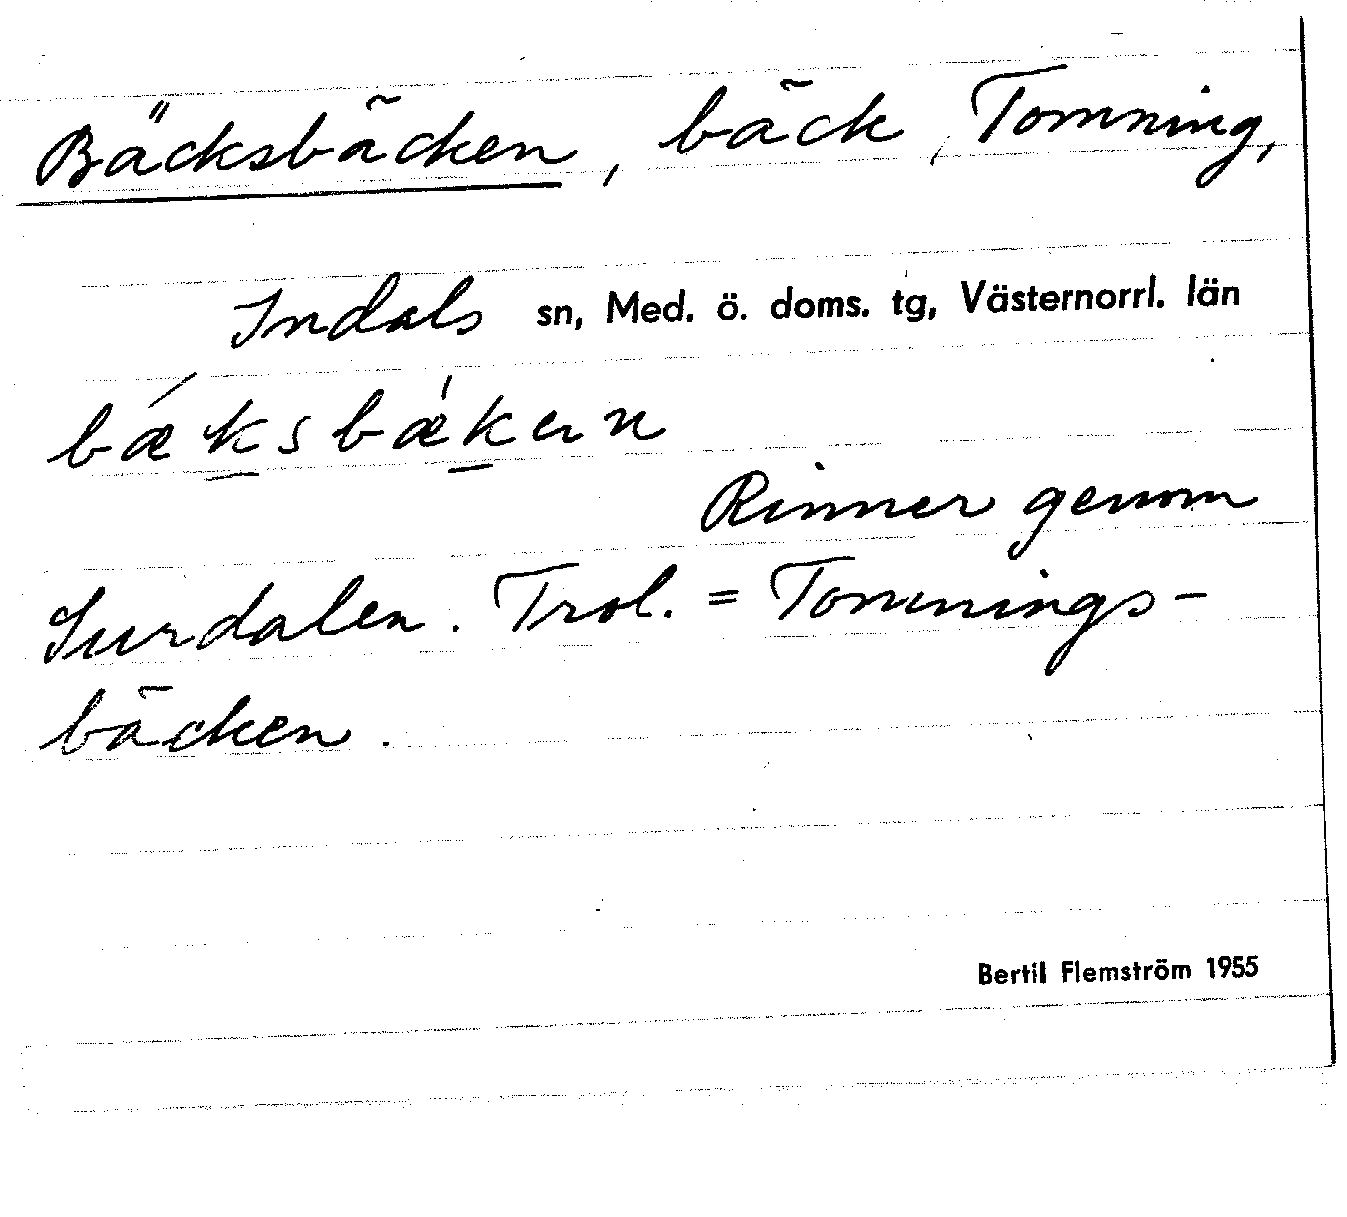 Bäcksbäcken, bäck, Tomming,
Indals sn, Med. ö. doms. tg, Västernorrl. län
bǽk̲sbǽk̲en
Rinner genom
Surdalen. Trol. = Tommings-
bäcken.
Bertil Flemström 1955